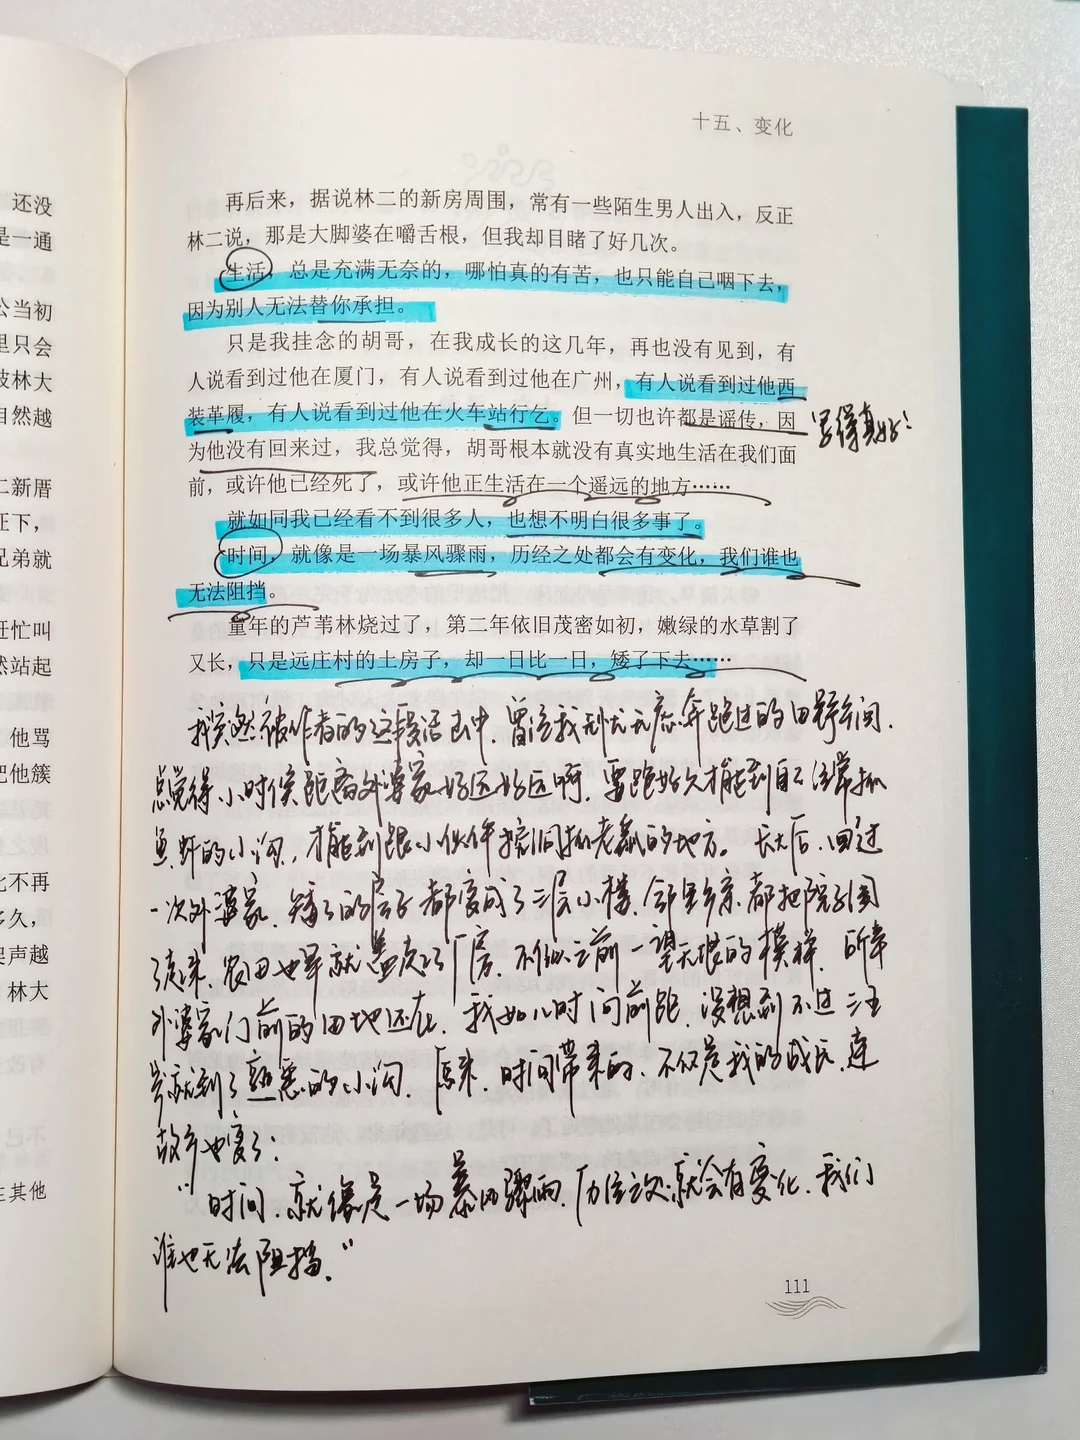 还没
是一通
公当初
里只会
皮林大
自然越
二新厝
庄下，
兄弟就
赶忙叫
然站起
他骂
把他簇
比不再
多久，
哭声越
林大
不已
在其他
十五、变化
再后来，据说林二的新房周围，常有一些陌生男人出入，反正
林二说，那是大脚婆在嚼舌根，但我却目睹了好几次。
生活，总是充满无奈的，哪怕真的有苦，也只能自己咽下去，
因为别人无法替你承担。
只是我挂念的胡哥，在我成长的这几年，再也没有见到，有
人说看到过他在厦门，有人说看到过他在广州，有人说看到过他西
装革履，有人说看到过他在火车站行乞。但一切也许都是谣传，因
为他没有回来过，我总觉得，胡哥根本就没有真实地生活在我们面
前，或许他已经死了，或许他正生活在一个遥远的地方……
写得真好！
就如同我已经看不到很多人，也想不明白很多事了。
时间，就像是一场暴风骤雨，历经之处都会有变化，我们谁也
无法阻挡。
童年的芦苇林烧过了，第二年依旧茂密如初，嫩绿的水草割了
又长，只是远庄村的土房子，却一日比一日，矮了下去……
我突然被作者的这段话击中，曾经我无忧无虑奔跑过的田野乡间.
总觉得小时候距离外婆家好远好远啊，要跑好久才能到自己经常抓
鱼虾的小沟，才能到跟小伙伴挖洞抓老鼠的地方。长大后，回过
一次外婆家，矮了的房子都变成了二层小楼，邻里乡亲都把院子围
了起来，农田也早就盖起了厂房，不似之前一望无垠的模样，所幸
外婆家门前的田地还在，我如儿时向前跑，没想到不过三五
步就到了熟悉的小沟，原来，时间带来的，不仅是我的成长，连
故乡也变了：
“时间，就像是一场暴风骤雨，历经之处就会有变化，我们
谁也无法阻挡.”
111